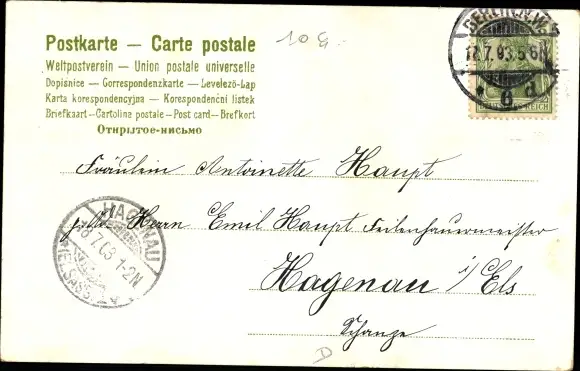 Postkarte — Carte postale
Weltpostverein — Union postale universelle
Dopisnice — Correspondenzkarte — Levelező-Lap
Karta korespondencyjna — Korespondenční listek
Briefkaart — Cartolina postale — Post card — Brefkort
Открытое-письмо
10 G.
BERLIN W.
17.7.03.5-6N
* 8 d
REICH
Fräulein Antoinette Haupt
Herrn Emil Haupt Feilenhauermeister
Hagenau i/Els
Schanze
HAGENAU
18.7.03 1-2N
(ELSASS)
D